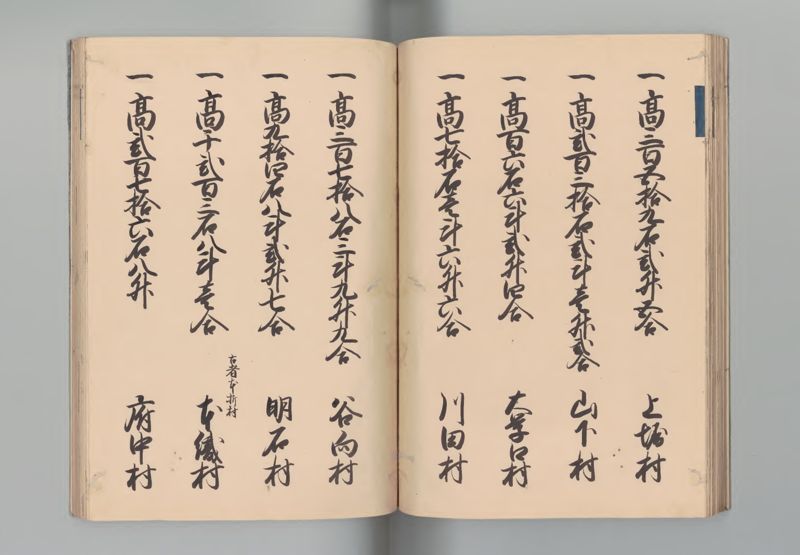 一 髙三百五拾九石弐升五合 上堀村
一 髙弐百三拾石弐斗壱升弐合 山下村
一 髙百六石六斗弐升四合 大学口村
一 髙七拾石壱斗六升六合 川田村
一 髙三百七拾八石三斗九升九合 谷向村
一 髙九拾四石八斗弐升七合 明石村
古者本折村
一 髙千弐百三石八斗壱合 本織村
一 髙弐百七拾六石八升 府中村